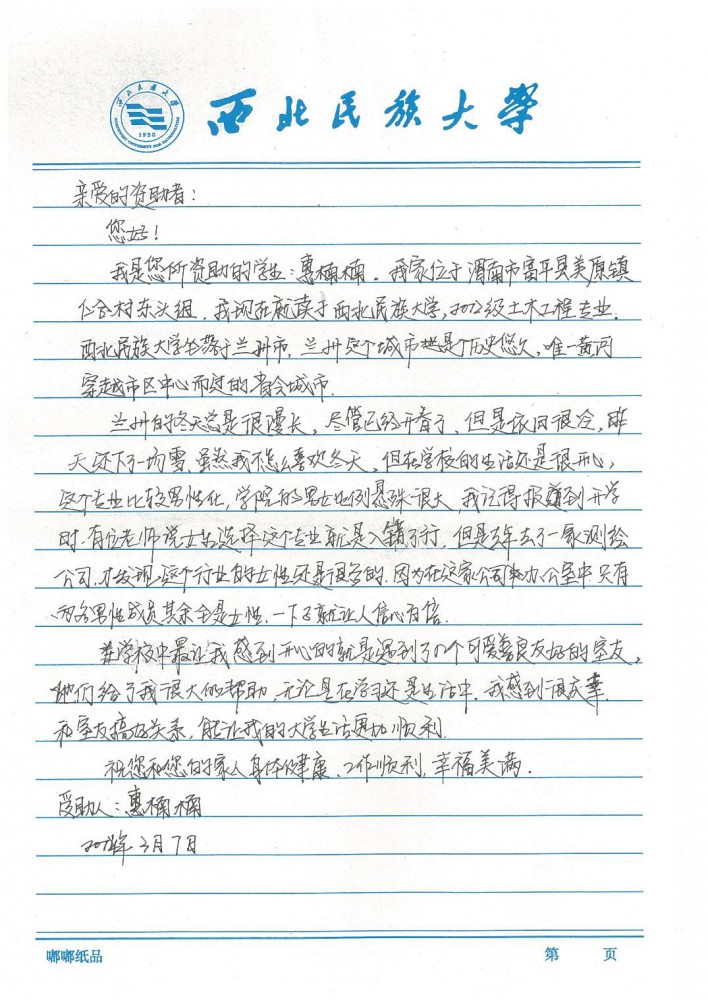 西北民族大学
1950
亲爱的资助者：
您好！
我是您所资助的学生：惠楠楠．我家位于渭南市富平县美原镇
仁合村东头组．我现在就读于西北民族大学，2022级土木工程专业．
西北民族大学坐落于兰州市，兰州这个城市也是个历史悠久，唯一黄河
穿越市区中心而过的省会城市．
兰州的冬天总是很漫长，尽管已经开春了，但是依旧很冷，昨
天还下了一场雪．虽然我不怎么喜欢冬天，但在学校的生活还是很开心，
这个专业比较男性化，学院的男女比例悬殊很大，我记得报道到开学
时．有位老师说女生选择这个专业就是入错了行．但是今年去了一家测绘
公司，才发现这个行业的女性还是很多的．因为在这家公司办公室中只有
两名男性成员其余全是女性．一下子就让人信心百倍．
在学校中最让我感到开心的就是遇到了几个可爱善良友好的室友，
她们给了我很大的帮助．无论是在学习还是生活中．我感到很庆幸．
和室友搞好关系，能让我的大学生活更加顺利．
祝您和您的家人身体健康、工作顺利，幸福美满．
受助人：惠楠楠
2024年3月7日
嘟嘟纸品 第 页